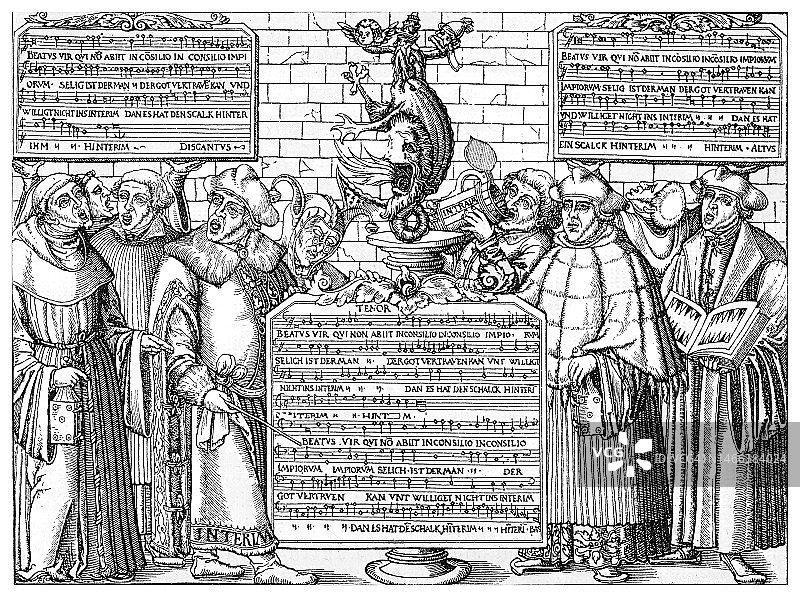 BEATVS VIR QVI NŌ ABIIT IN CŌSILIO IN CONSILIO IMPI
ORVM · SELIG IST DER MAN ꝶ DER GOT VERTRAVĒ KAN VND
WILLIGT NICHT INS INTERIM DAN ES HAT DEN SCALK HINTER
IHM HINTERIM DISCANTVS
BEATVS VIR QVI NŌ ABIIT INCŌSILIO INCŌSILIO IMPIORVM
IMPIORVM SELIG IST DERMAN DERGOT VERTRAVEN KAN
VND WILLIGET NICHT INS INTIRIM DAN ES HAT
EIN SCALCK HINTERIM HINTERIM · ALTVS
INTERIM
TENOR
BEATVS VIR QVI NON ABIIT INCONSILIO INCONSILIO IMPIO · RVM
SELICH IST DERMAN DERGOT VERTRAVEN KAN VNT WILLIG
NICHT INS INTERIM DAN ES HAT DEN SCHALCK HINTERI
HINTERIM
BEATVS · VIR QVI NŌ ABIIT INCONSILIO INCONSILIO
IMPIORVM IMPIORVM SELICH · IST DERMAN DER
GOT VERTRVEN KAN VNT WILLIGET NICHT INS INTERIM
DAN ES HAT DE SCHALK HĪTERIM HĪTERI · BAS
INTERIM
VCG